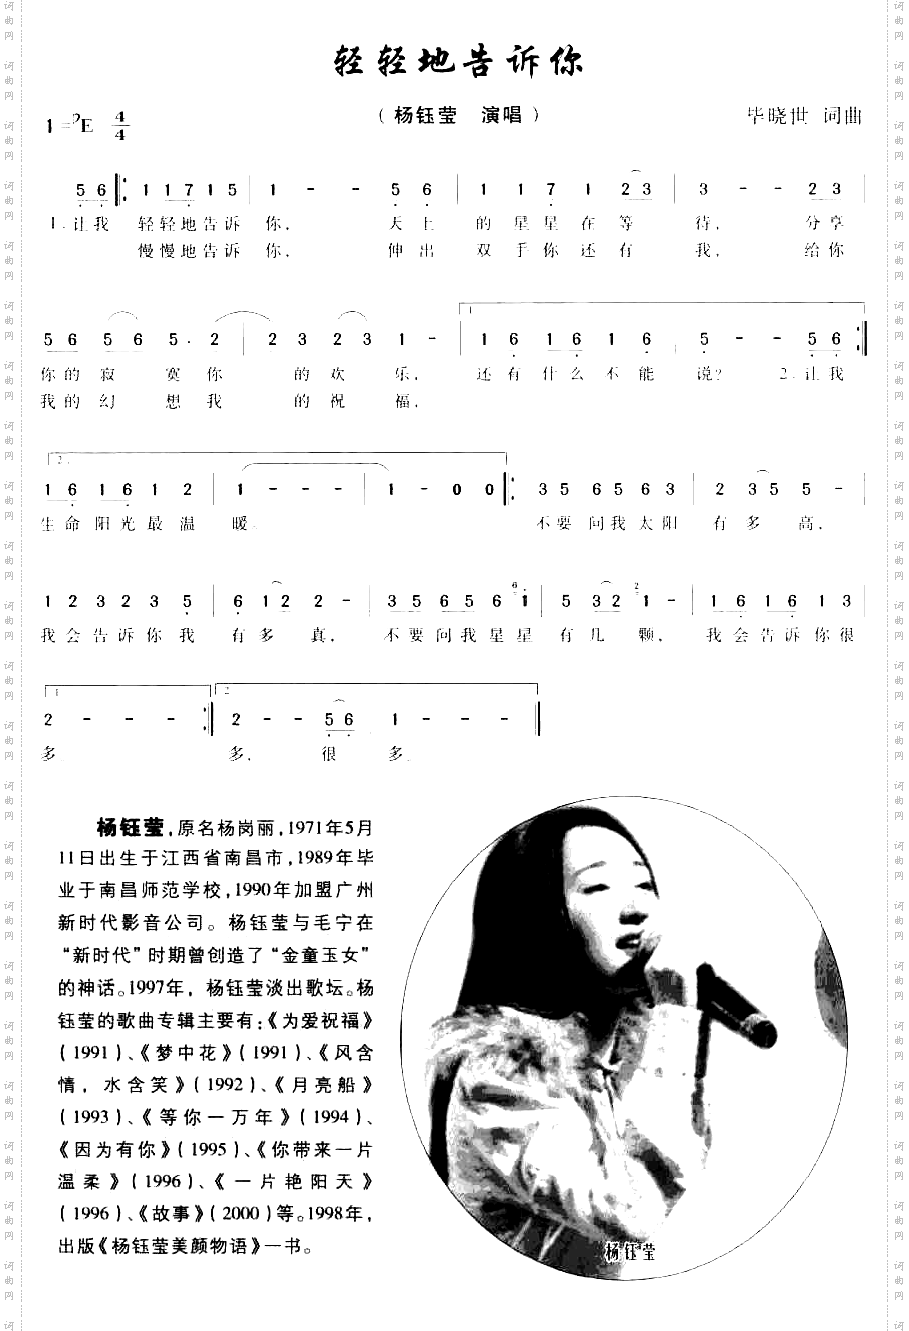 轻轻地告诉你
（杨钰莹 演唱）
1=♭E 4/4
毕晓世 词曲
5 6 1 1 7 1 5 1 - - 5 6 1 1 7 1 2 3 3 - - 2 3
1.让我 轻轻地告诉 你， 天上 的星星在等 待， 分享
慢慢地告诉 你， 伸出 双手你还有 我， 给你
1
5 6 5 6 5 . 2 2 3 2 3 1 - 1 6 1 6 1 6 5 - - 5 6
你的寂 寞你 的欢 乐， 还有什么不能 说？ 2.让我
我的幻 想我 的祝 福，
2.
1 6 1 6 1 2 1 - - - 1 - 0 0 3 5 6 5 6 3 2 3 5 5 -
生命阳光最温 暖。 不要问我太阳 有多高，
1 2 3 2 3 5 6 1 2 2 - 3 5 6 5 6 i 5 3 2 1 - 1 6 1 6 1 3
我会告诉你我 有多真， 不要问我星星 有几颗， 我会告诉你很
1. 2
2 - - - 2 - - 5 6 1 - - -
多。 多， 很 多。
杨钰莹，原名杨岗丽，1971年5月
11日出生于江西省南昌市，1989年毕
业于南昌师范学校，1990年加盟广州
新时代影音公司。杨钰莹与毛宁在
“新时代”时期曾创造了“金童玉女”
的神话。1997年，杨钰莹淡出歌坛。杨
钰莹的歌曲专辑主要有：《为爱祝福》
（1991）、《梦中花》（1991）、《风含
情，水含笑》（1992）、《月亮船》
（1993）、《等你一万年》（1994）、
《因为有你》（1995）、《你带来一片
温柔》（1996）、《一片艳阳天》
（1996）、《故事》（2000）等。1998年，
出版《杨钰莹美颜物语》一书。
杨钰莹
词曲网